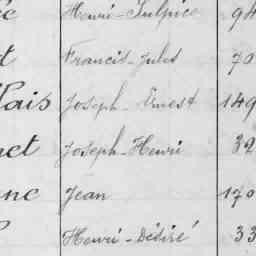 Henri-Sulpice 94
t Francis-Jules 70
lais Joseph-Ernest 149
net Joseph-Henri 32
anc Jean 170
Henri-Désiré 33